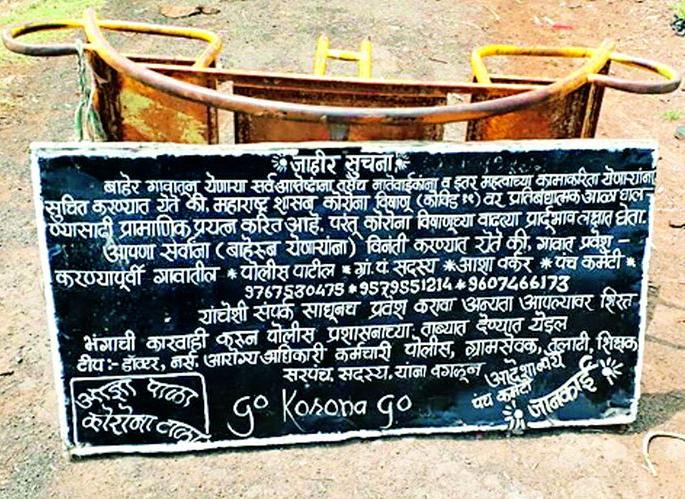 जाहीर सुचना
बाहेर गावातून येणाऱ्या सर्व आप्तेष्टांना तसेच नातेवाईकांना व इतर महत्वाच्या कामाकरिता येणाऱ्यांना
सुचित करण्यात येते की, महाराष्ट्र शासन कोरोना विषाणू (कोविड १९) वर प्रतिबंधात्मक आळा घाल-
ण्यासाठी प्रामाणिक प्रयत्न करित आहे, परंतू कोरोना विषाणूच्या वाढत्या प्रादूर्भाव लक्षात घेता.
आपणा सर्वांना (बाहेरून येणाऱ्यांना) विनंती करण्यात येते की, गावात प्रवेश-
करण्यापूर्वी गावातील * पोलीस पाटील * ग्रा. पं. सदस्य * आशा वर्कर * पंच कमेटी *
9767580475 * 9579551214 * 9607466173
यांचेशी संपर्क साधूनच प्रवेश करावा अन्यता आपल्यावर शिस्त
भंगाची कारवाही करून पोलीस प्रशासनाच्या, ताब्यात देण्यात येइल
टीप:- डॉक्टर, नर्स, आरोग्य अधिकारी कर्मचारी पोलीस, ग्रामसेवक, तलाठी, शिक्षक
सरपंच, सदस्य, यांना वगळून
आदेशान्वये
पंच कमेटी
जानकाई
आज्ञा पाळा
कोरोना टाळा
go Korona go